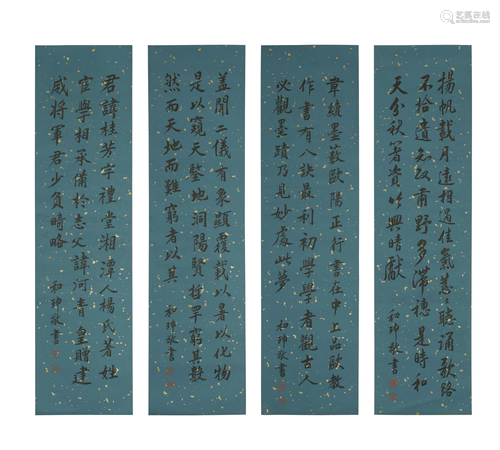 艺狐在线
揚帆載月遠相過佳氣蔥々聽誦歌路
不拾遺知政肅野多滯穗是時和
天分秋暑資吟興晴獻
和珅敬書
韋續墨藪歐陽正行書在中上品歐教
作書有八訣最利初學學者觀古人
必觀墨蹟乃見妙處此夢
和珅敬書
蓋聞二儀有象顯覆載以以化物
是以窺天鑒地洞陽賢哲罕窮其數
然而天地而難窮者以其
和珅敬書
君諱桂芳字禮堂湘潭人楊氏著姓
宦學相承備於志父諱河青皇贈建
威將軍君少負時略
和珅敬書